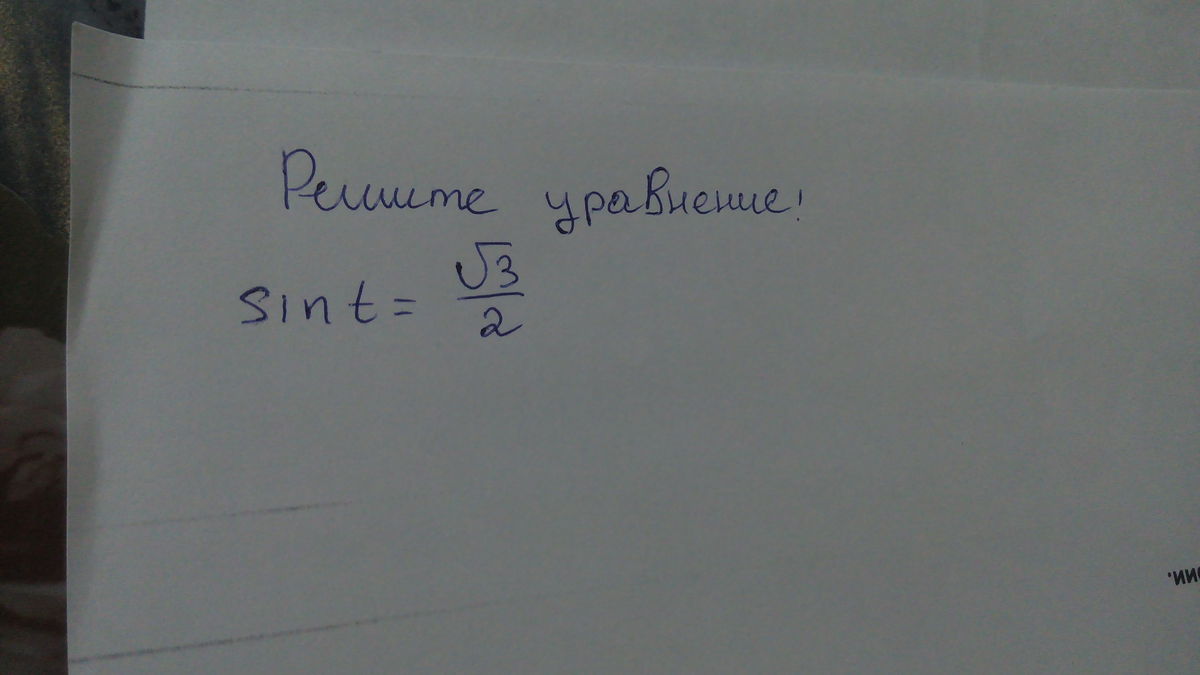 Решите уравнение!
sin t = √3/2